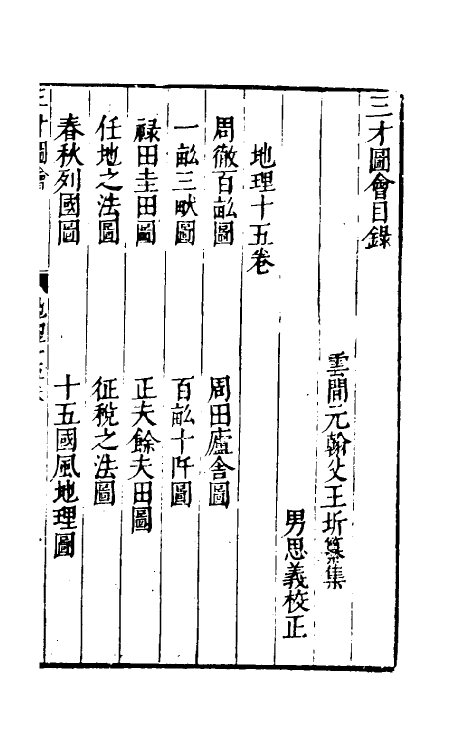 三才圖會目錄
雲間元翰父王圻纂集
男思義校正
地理十五卷
周徹百畝圖　周田廬舍圖
一畝三畎圖　百畝十阡圖
祿田圭田圖　正夫餘夫田圖
任地之法圖　征稅之法圖
春秋列國圖　十五國風地理圖
三才圖會